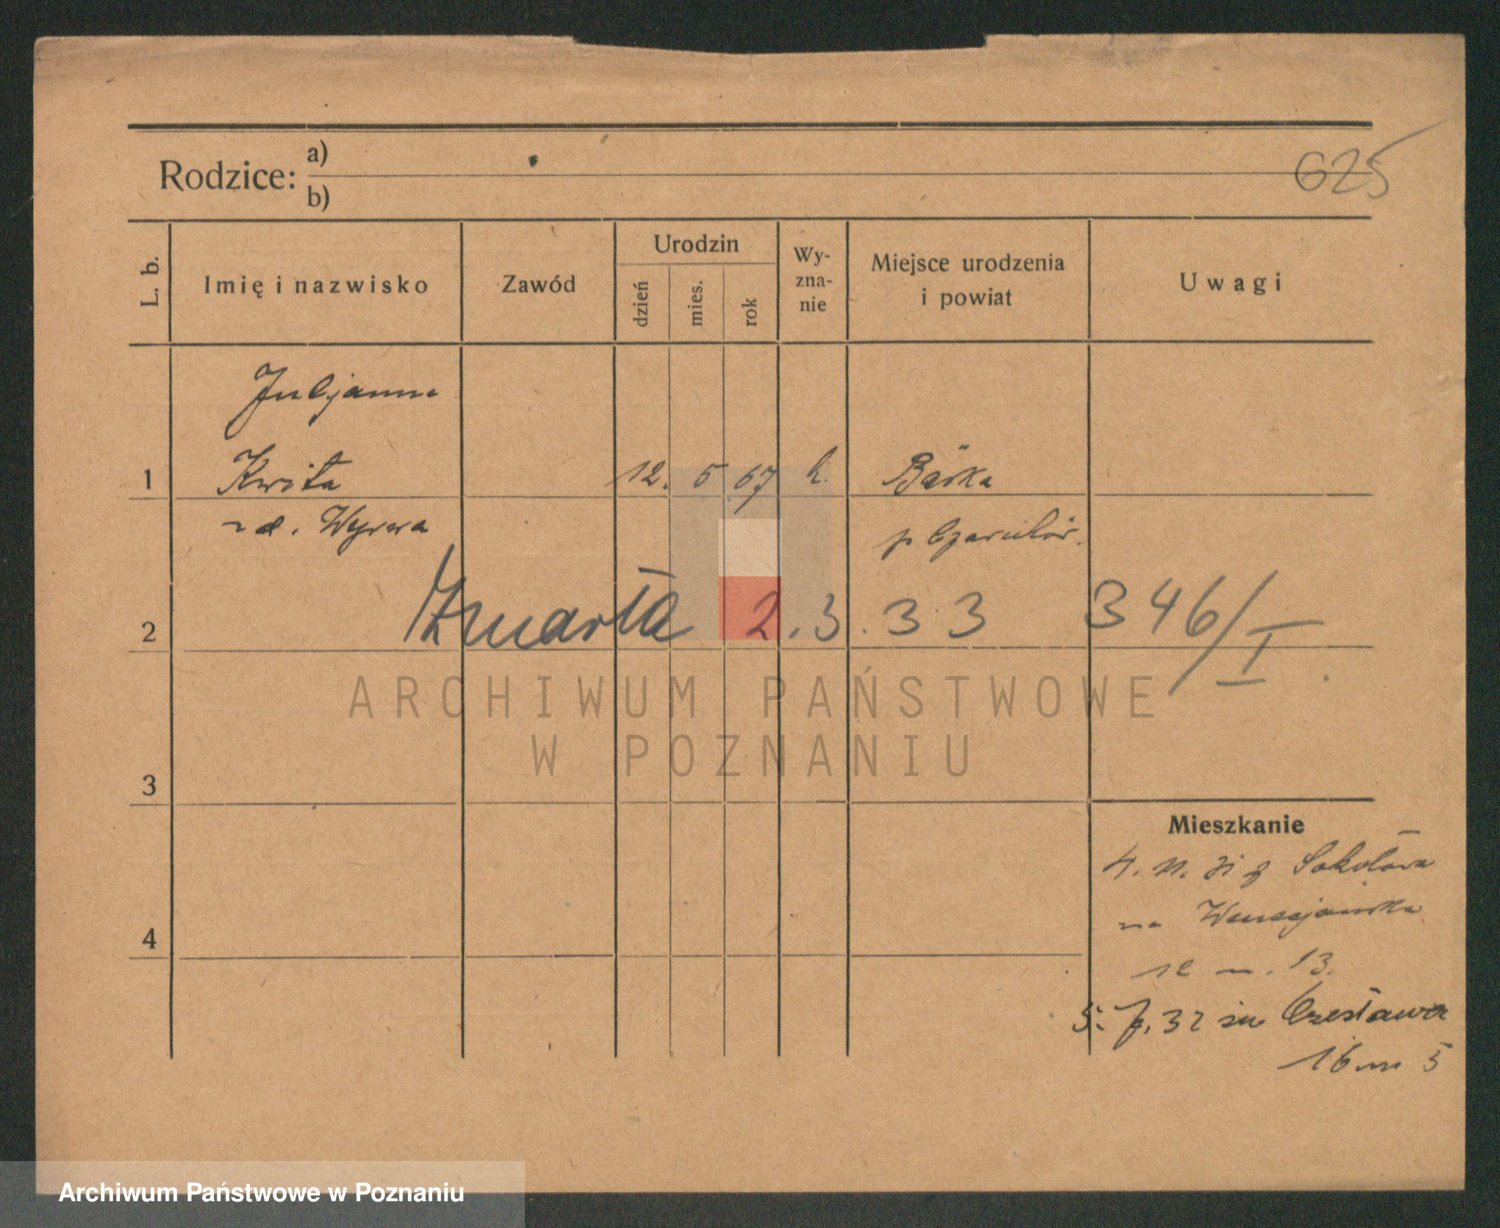 Rodzice:
a)
b)
625
L. b.
Imię i nazwisko
Zawód
Urodzin
dzień
mies.
rok
Wy-
zna-
nie
Miejsce urodzenia
i powiat
Uwagi
Juljanna
1
Kwita
12. 5 67
Bärka
p Czarnków.
2
Zmarła 2.3.33 346/I.
ARCHIWUM PAŃSTWOWE
W POZNANIU
3
Mieszkanie
Sokołowa
na
4
12 m. 13.
5. 32 Czesława
16 m 5
Archiwum Państwowe w Poznaniu